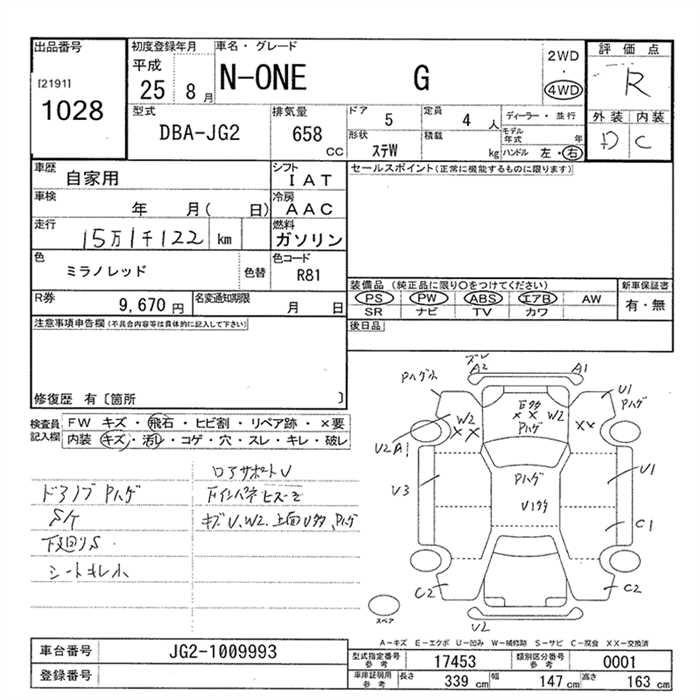 出品番号
[2191]
1028
初度登録年月
平成
25 8月
車名・グレード
N-ONE G
2WD
・
4WD
評価点
R
外装 内装
D C
型式
DBA-JG2
排気量
658 CC
ドア 5
定員 4 人
ディーラー・並行
形状 ステW
積載 kg
モデル年式 年
ハンドル 左・右
車歴 自家用
シフト IAT
セールスポイント(正常に機能するものに限ります)
車検 年 月( 日)
冷房 AAC
走行 15万1千122 km
燃料 ガソリン
色 ミラノレッド 色替
色コード R81
装備品 (純正品に限り○をつけてください)
新車保証書
PS PW ABS エアB AW
有・無
SR ナビ TV カワ
R券 9,670 円
名変通知期限 月 日
後日品
注意事項申告欄(不具合内容等は具体的に記入して下さい)
修復歴 有〔箇所 〕
検査員記入欄
FW キズ・飛石・ヒビ割・リペア跡・×要
内装 キズ・汚レ・コゲ・穴・スレ・キレ・破レ
ロアサポートV
ドアノブPハゲ
Sケ
下廻りS
シートキレ小
キズV、W2、上面Uタタ、Pハゲ
ズレ
A2 A1
Pハゲ小
U1
Pハゲ
W2
××
××
W2
Pハゲ
××
U2 A1
U3
Pハゲ
U1
C1
C2
C2
U2
スペア
A-キズ E-エクボ U-凹み W-補修跡 S-サビ C-腐食 XX-交換済
車台番号 JG2-1009993
登録番号
型式指定番号参考 17453
類別区分番号参考 0001
車庫証明用参考 長さ 339 cm 幅 147 cm 高さ 163 cm